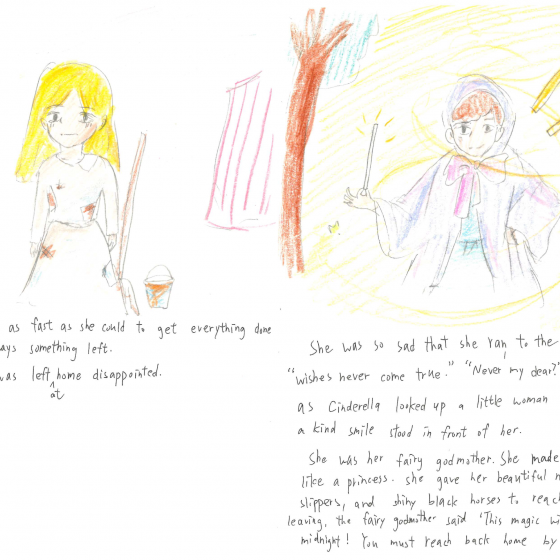 as fast as she could to get everything done
ays something left.
was left at home disappointed.
She was so sad that she ran to the
"wishes never come true." "Never my dear?"
as Cinderella looked up a little woman
a kind smile stood in front of her.
She was her fairy godmother. She made
like a princess. she gave her beautiful
slippers, and shiny black horses to reac
leaving, the fairy godmother said 'This magic wi
midnight! You must reach back home by